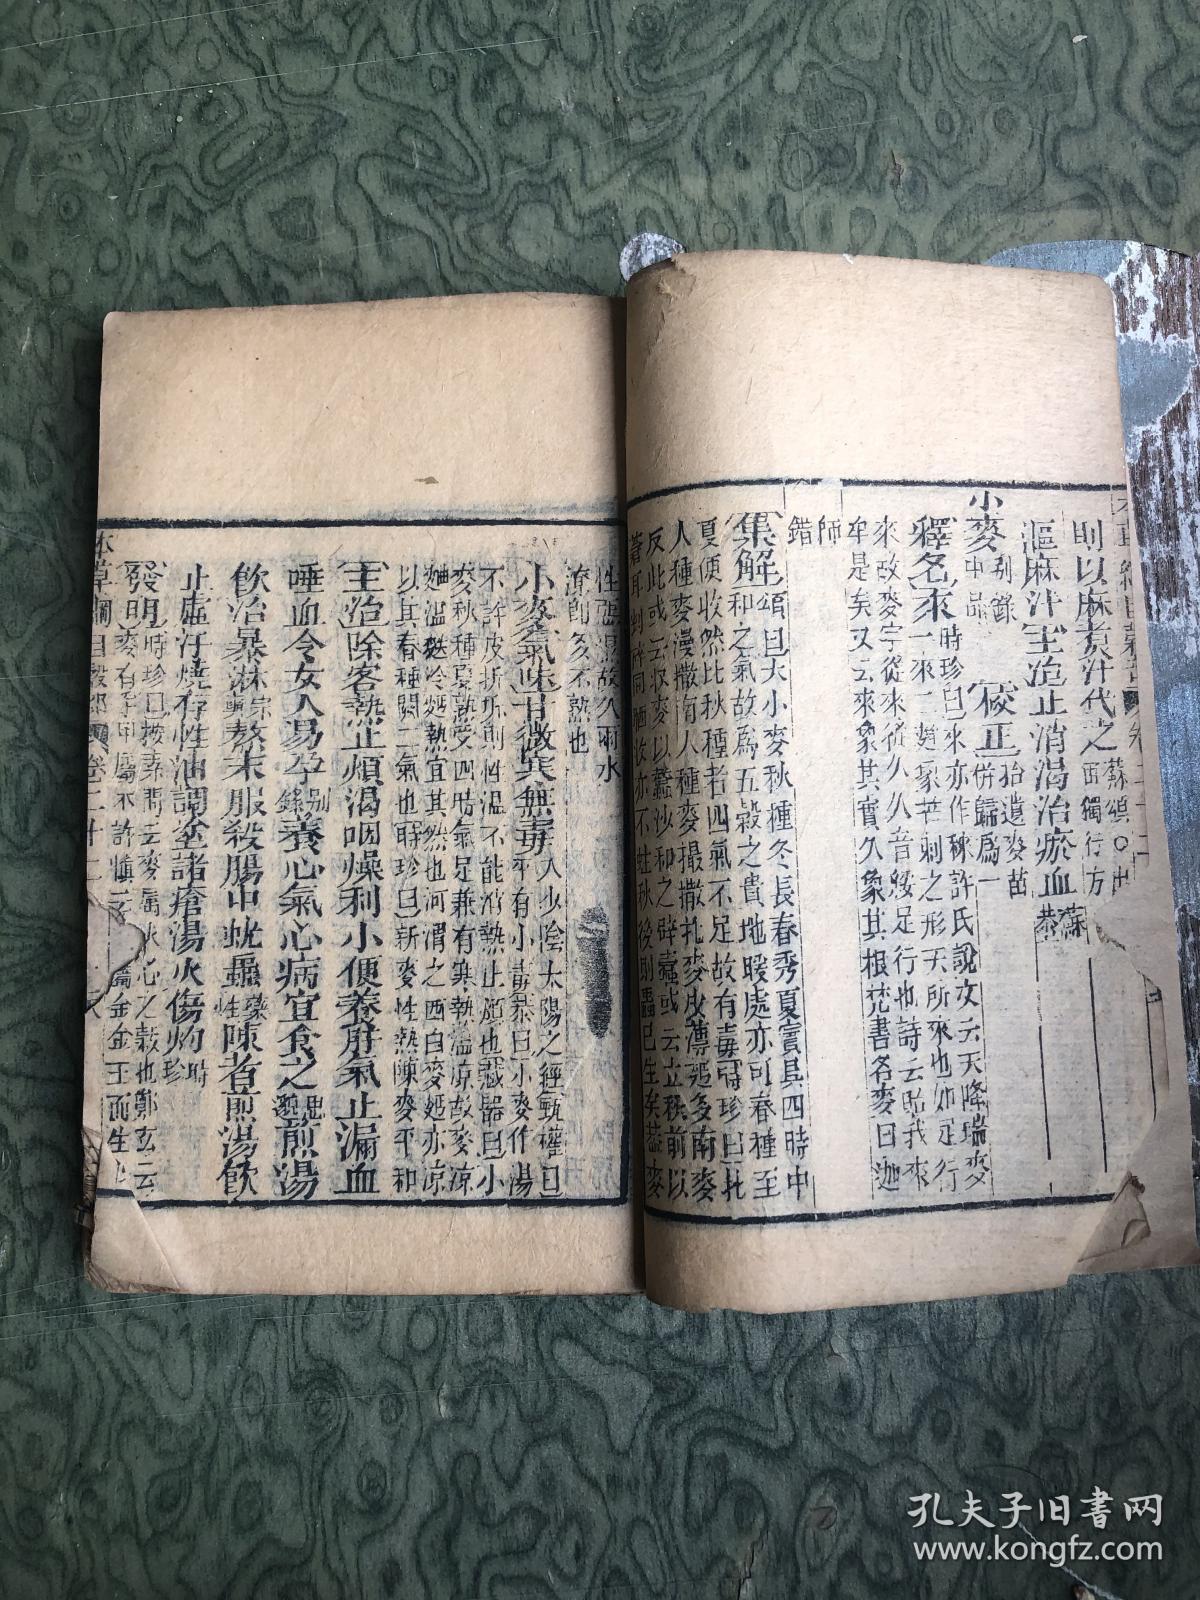 則以麻煮汁代之蘇頌〇出西獨行方
漚麻汁主治止消渴治瘀血蘇恭
小麥別錄中品校正拾遺麥苗併歸爲一
釋名來時珍曰來亦作䅘許氏說文云天降瑞麥
一來一麰象芒刺之形天所來也如足行
來故麥字從來從夊夊音綏足行也詩云貽我來
牟是矣又云來象其實夊象其根梵書名麥曰迦
師
錯
集解頌曰大小麥秋種冬長春秀夏實具四時中
和之氣故爲五穀之貴地暖處亦可春種至
夏便收然比秋種者四氣不足故有毒時珍曰北
人種麥漫撒南人種麥撮撒北麥皮薄麪多南麥
反此或云收麥以蠶沙和之辟蠹或云立秋前以
蒼耳剉碎同晒收亦不蛀秋後則蟲已生矣蓋麥
性惡濕故久雨水
潦即多不熟也
小麥氣味甘微寒無毒入少陰太陽之經甄權曰
平有小毒恭曰小麥作湯
不許皮折折則性溫不能消熱止煩也藏器曰小
麥秋種夏熟受四時氣足兼有寒熱溫涼故麥涼
麯溫麩冷麪熱宜其然也河渭之西白麥麪亦涼
以其春種闕二氣也時珍曰新麥性熱陳麥平和
主治除客熱止煩渴咽燥利小便養肝氣止漏血
唾血令女人易孕別錄養心氣心病宜食之思邈煎湯
飲治暴淋宗奭熬末服殺腸中蚘蟲藥性陳者煎湯飲
止虛汗燒存性油調塗諸瘡湯火傷灼時珍
發明時珍曰按素問云麥屬火心之穀也鄭玄云
麥有孚甲屬木許慎云 屬金金王而生
本草綱目穀部 卷二十二
孔夫子旧书网
www.kongfz.com